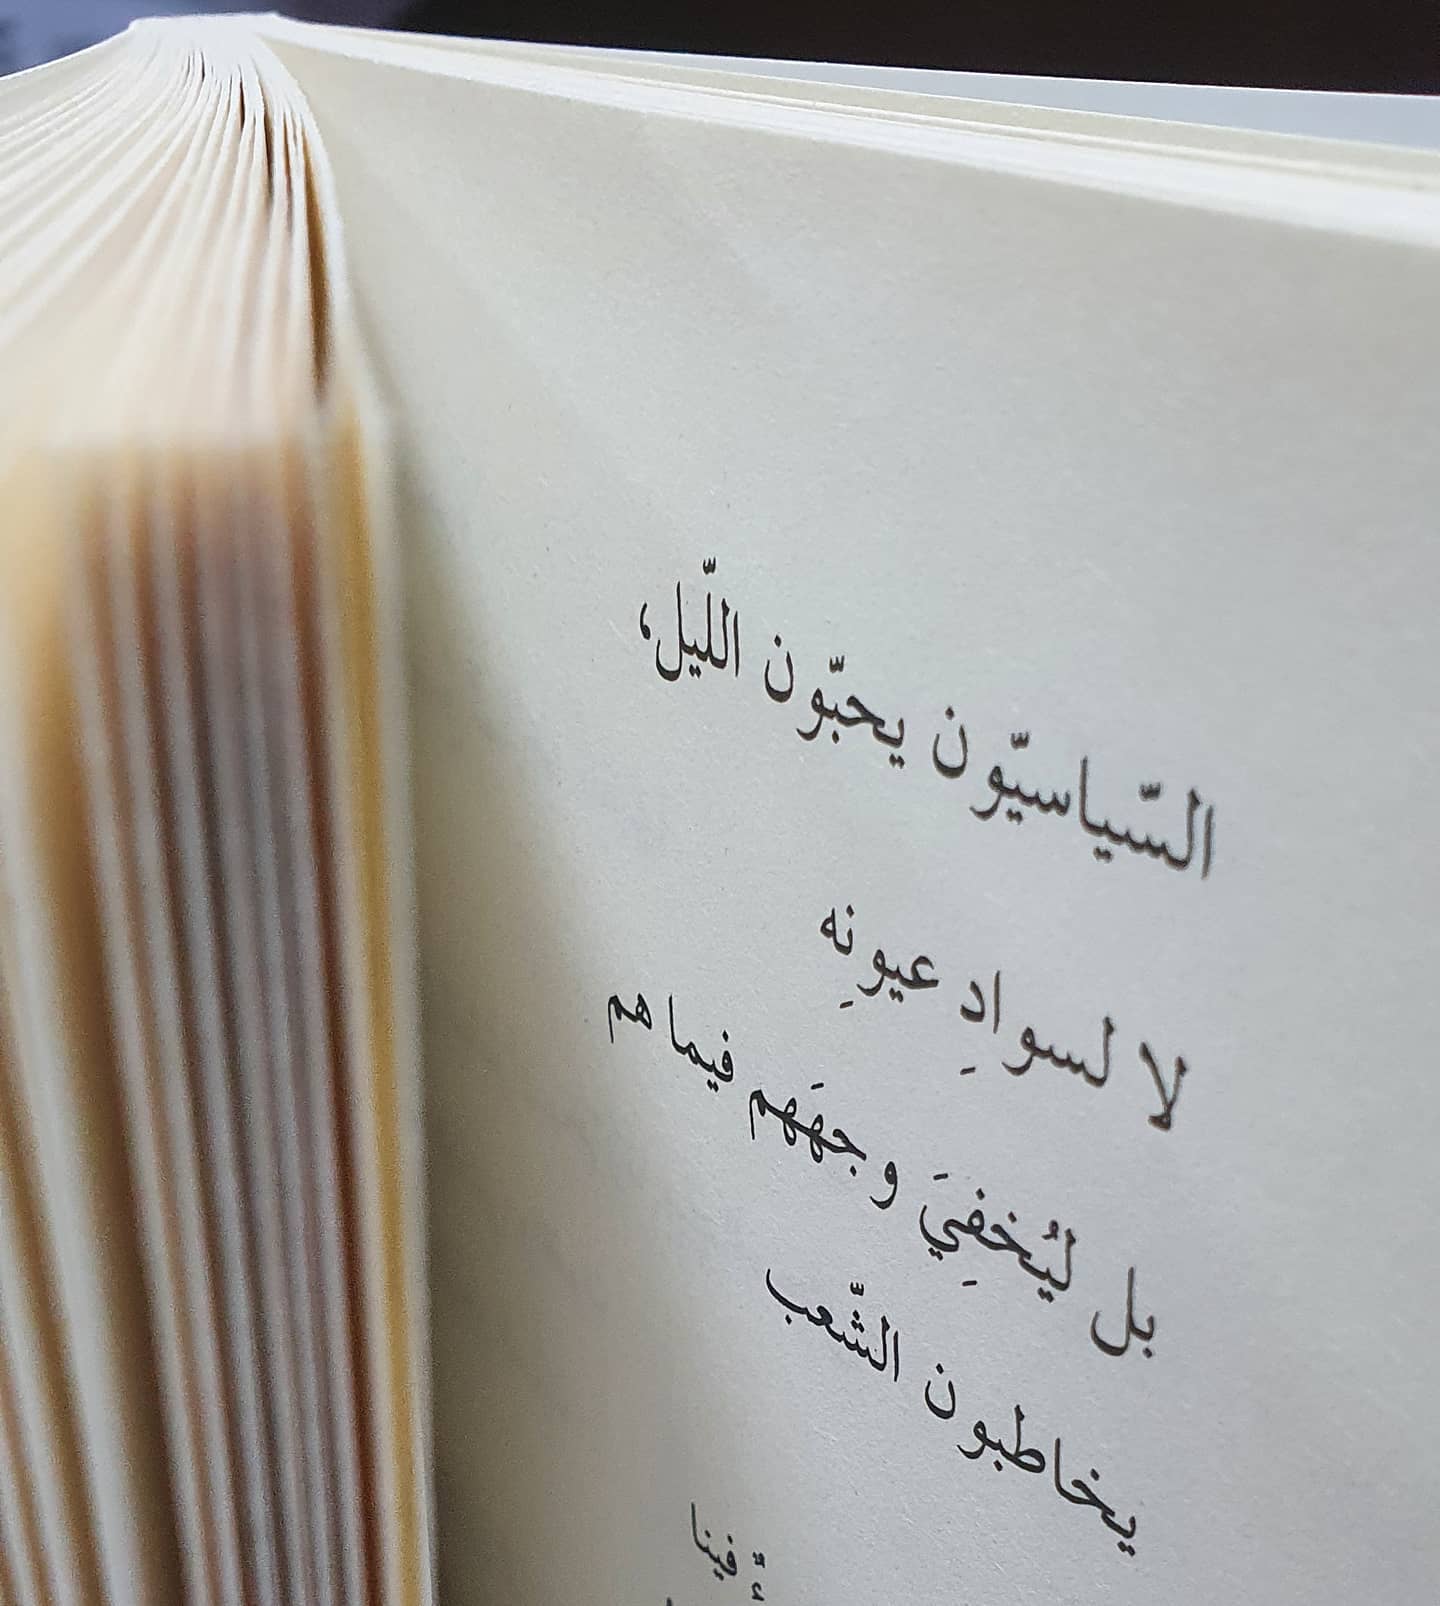 السّياسيّون يحبّون اللّيل،
لا لسوادِ عيونِه
بل ليُخفِيَ وجهَهم فيما هم
يخاطبون الشّعب
فينا